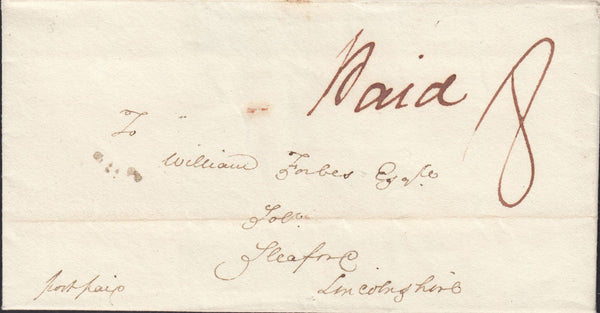 Paid 8
To
William Forbes Esqre
Solr
Sleaford
Lincolnshire
post paid